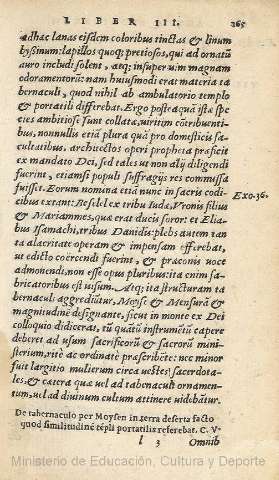 LIBER III. 265
adhæc lanas eisdem coloribus tinctas & linum
byssinum: lapillos quoq; pretiosos, qui ad ornatũ
auro includi solent, atq; insuper uim magnam
odoramentorũ: nam huiusmodi erat materia ta
bernaculi, quod nihil ab ambulatorio templo
& portatili differebat. Ergo postea quã ista spe
cies ambitiose sunt collata, uiritim cõtribuenti-
bus, nonnullis etiã plura quã pro domesticis fa-
cultatibus. architectos operi propheta præficit
ex mandato Dei, sed tales ut non alij diligendi
fuerint, etiamsi populi suffragijs res commissa
fuisset. Eorum nomina etiã nunc in sacris codi-
cibus extant: Beselel ex tribu Iuda, Vronis filius
& Mariammes, quæ erat ducis soror: et Elia-
bus Isamachi, tribus Danidis: plebs autem tan
ta alacritate operam & impensam offerebat,
ut edicto coërcendi fuerint, & præconis uoce
admonendi, non esse opus pluribus: ita enim fa-
bricatoribus est uisum. Atq; ita structuram ta
bernaculi aggrediũtur, Moyse & Mensurã &
magnitudinē designante, sicut in monte ex Dei
colloquio didicerat, tũ quãtũ instrumẽti capere
deberet ad usum sacrificorũ & sacrorũ mini-
steriorum, ritè ac ordinatè præscribēte: nec minor
fuit largitio mulierum circa uestes sacerdota-
les, & cætera quæ uel ad tabernaculi ornamen-
tum, uel ad diuinum cultum attinere uidebantur.
Exo. 36.
De tabernaculo per Moysen in terra deserta facto
quod similitudinē tēpli portatilis referebat. C. V
l 3 Omnib
Ministerio de Educación, Cultura y Deporte